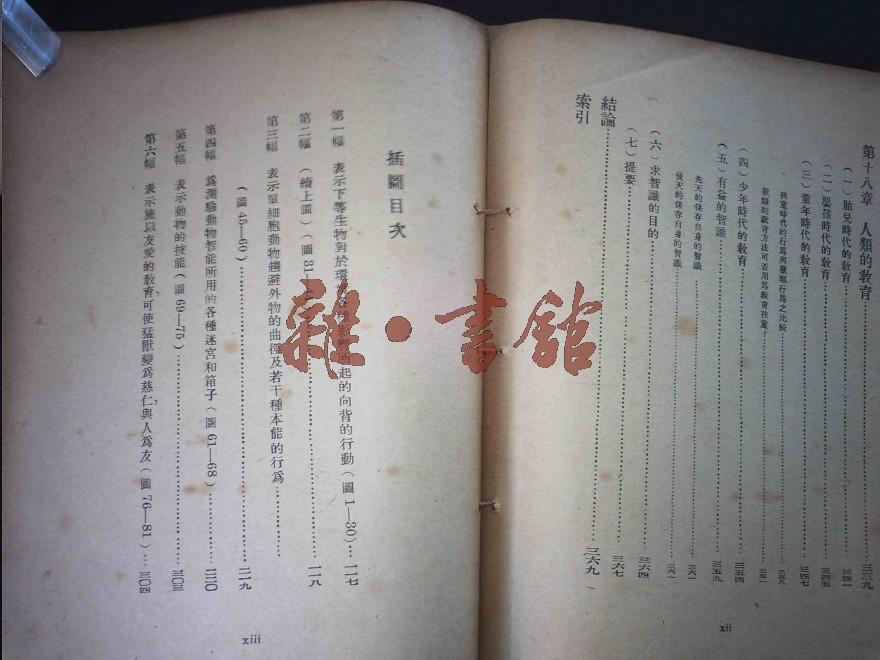 第十八章 人類的教育……三三九
(一)胎兒時代的教育……三四一
(二)嬰孩時代的教育……三四五
(三)童年時代的教育……三四七
孩童時代的行爲與獸類行爲之比較……三四九
獸類的教育方法可否用爲教育孩童……三五一
(四)少年時代的教育……三五四
(五)有益的智識……三五九
先天的保存自身的智識……三六一
後天的保存自身的智識……三六一
(六)求智識的目的……三六四
(七)提要……三六七
結論
索引……三六九
xii
插圖目次
第一幅 表示下等生物對於環 起的向背的行動(圖1—30)……一一七
第二幅 (續上圖)(圖31—……一一八
第三幅 表示單細胞動物趨避外物的曲徑及若干種本能的行爲……
(圖45—60)……二一九
第四幅 爲測驗動物智能所用的各種迷宮和箱子(圖61—68)……二二〇
第五幅 表示動物的技能(圖69—75)……三〇三
第六幅 表示施以友愛的教育,可使猛獸變爲慈仁,與人爲友(圖76—81)……三〇四
xiii
雜·書館